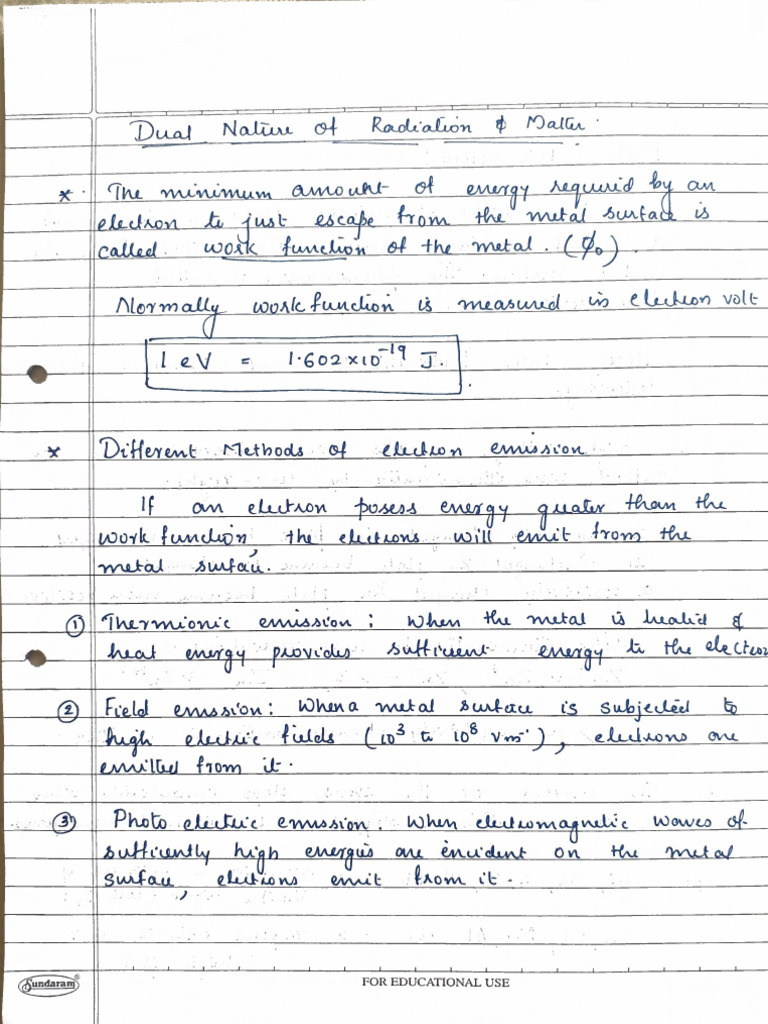 Dual Nature of Radiation & Matter.
* The minimum amount of energy required by an
electron to just escape from the metal surface is
called work function of the metal. (ϕ₀).
Normally work function is measured in electron volt
1 eV = 1.602×10⁻¹⁹ J.
* Different Methods of electron emission
If an electron posess energy greater than the
work function, the electrons will emit from the
metal surface.
① Thermionic emission: When the metal is heated &
heat energy provides sufficient energy to the electron
② Field emission: When a metal surface is subjected to
high electric fields (10³ to 10⁸ Vm⁻¹), electrons are
emitted from it.
③ Photo electric emission: When electromagnetic waves of
sufficently high energies are encident on the metal
surface, electrons emit from it.
Sundaram®
FOR EDUCATIONAL USE